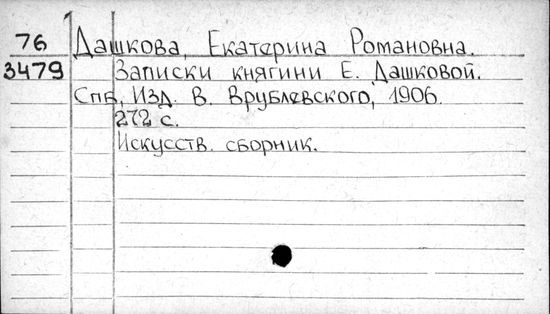 76 Дашкова, Екатерина Романовна.
3479 Записки княгини Е. Дашковой.
Спб, Изд. В. Врублевского, 1906.
272 с.
Искусств. сборник.